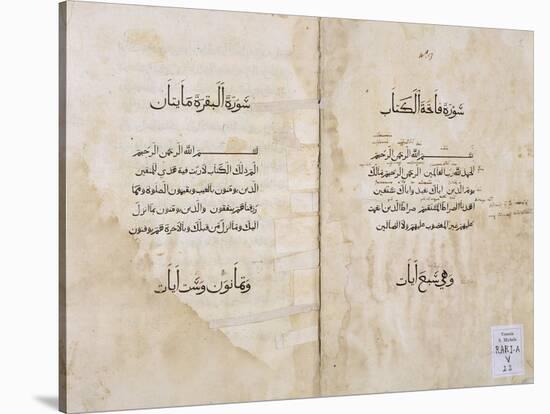 سورة فاتحة الكتاب
بسم الله الرحمن الرحيم
الحمد لله رب العالمين الرحمن الرحيم مالك
يوم الدين اياك نعبد واياك نستعين
اهدنا الصراط المستقيم صراط الذين انعمت
عليهم غير المغضوب عليهم ولا الضالين
وهي سبع أيات
سورة البقرة مايتان
بسم الله الرحمن الرحيم
الم ذلك الكتاب لا ريب فيه هدي للمتقين
الذين يومنون بالغيب ويقيمون الصلوة ومما
رزقناهم ينفقون والذين يومنون بما انزل
اليك وما انزل من قبلك وبالاخرة هم يوقنون
وثمانون وست أيات
Venezia
S. Michele
RARI-A
V
22